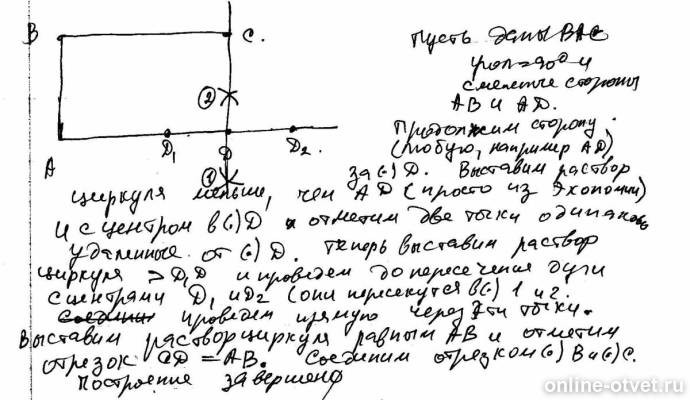 B
C.
A
D₁
D
D₂
②
①
Пусть даны
угол = 90° и
смежные стороны
AB и AD.
Продолжим сторону
(любую, например AD)
за (·) D. Выставим раствор
циркуля меньше, чем AD (просто из экономии)
и с центром в (·) D отметим две точки одинаково
удаленные от (·) D. Теперь выставим раствор
циркуля > D₁D и проведем до пересечения дуги
с центрами D₁ и D₂ (они пересекутся в (·) 1 и 2.
проведем прямую через эти точки.
Выставим раствор циркуля равным AB и отметим
отрезок CD = AB. Соединим отрезком (·) B и (·) C.
Построение завершено
online-otvet.ru